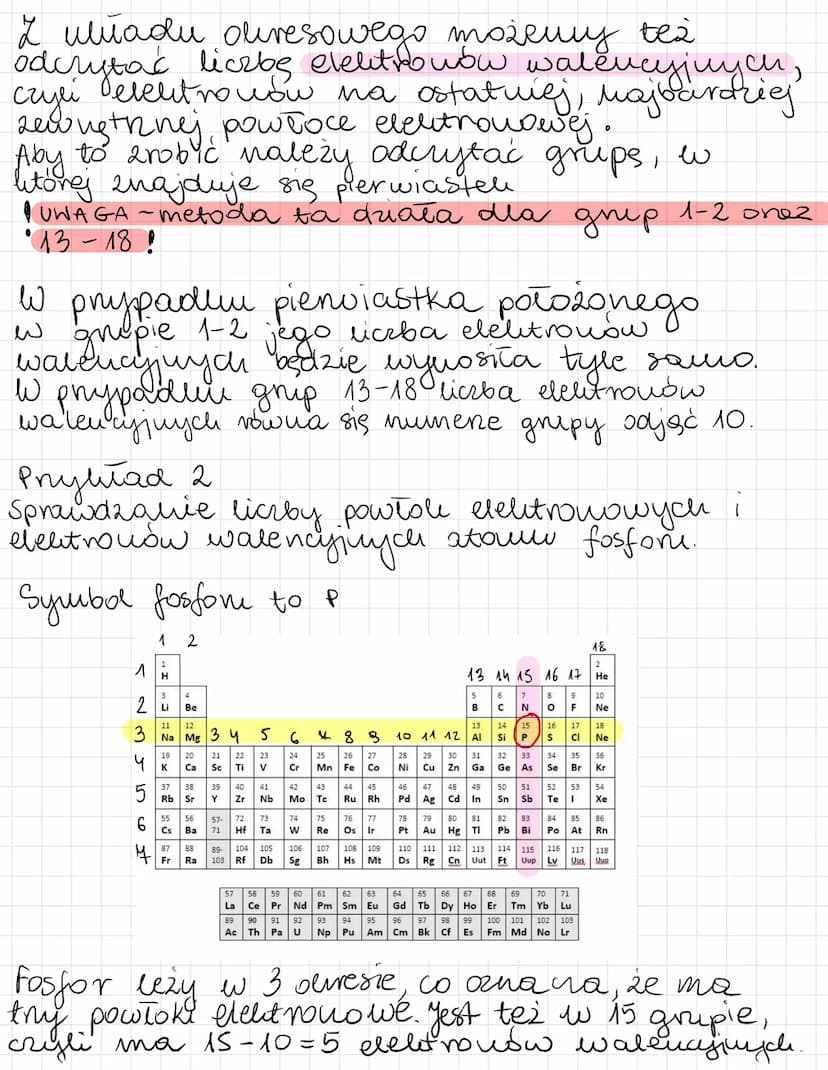 Z układu okresowego możemy też
odczytać liczbę elektronów walencyjnych,
czyli elektronów na ostatniej, najbardziej
zewnętrznej powłoce elektronowej.
Aby to zrobić należy odczytać grupę, w
której znajduje się pierwiastek
! UWAGA - metoda ta działa dla grup 1-2 oraz
13 - 18 !
W przypadku pierwiastka położonego
w grupie 1-2 jego liczba elektronów
walencyjnych będzie wynosiła tyle samo.
W przypadku grup 13-18 liczba elektronów
walencyjnych równa się numerze grupy odjąć 10.
Przykład 2
Sprawdzanie liczby powłok elektronowych i
elektronów walencyjnych atomu fosforu.
Symbol fosforu to P
1 2 18
1 2
1 H He
13 14 15 16 17
3 4 5 6 7 8 9 10
2 Li Be B C N O F Ne
11 12 13 14 15 16 17 18
3 Na Mg 3 4 5 6 7 8 9 10 11 12 Al Si P S Cl Ne
19 20 21 22 23 24 25 26 27 28 29 30 31 32 33 34 35 36
4 K Ca Sc Ti V Cr Mn Fe Co Ni Cu Zn Ga Ge As Se Br Kr
37 38 39 40 41 42 43 44 45 46 47 48 49 50 51 52 53 54
5 Rb Sr Y Zr Nb Mo Tc Ru Rh Pd Ag Cd In Sn Sb Te I Xe
55 56 57- 72 73 74 75 76 77 78 79 80 81 82 83 84 85 86
6 Cs Ba 71 Hf Ta W Re Os Ir Pt Au Hg Tl Pb Bi Po At Rn
87 88 89- 104 105 106 107 108 109 110 111 112 113 114 115 116 117 118
7 Fr Ra 103 Rf Db Sg Bh Hs Mt Ds Rg Cn Uut Ft Uup Lv Uus Uuo
57 58 59 60 61 62 63 64 65 66 67 68 69 70 71
La Ce Pr Nd Pm Sm Eu Gd Tb Dy Ho Er Tm Yb Lu
89 90 91 92 93 94 95 96 97 98 99 100 101 102 103
Ac Th Pa U Np Pu Am Cm Bk Cf Es Fm Md No Lr
Fosfor leży w 3 okresie, co oznacza, że ma
trzy powłoki elektronowe. Jest też w 15 grupie,
czyli ma 15-10=5 elektronów walencyjnych.